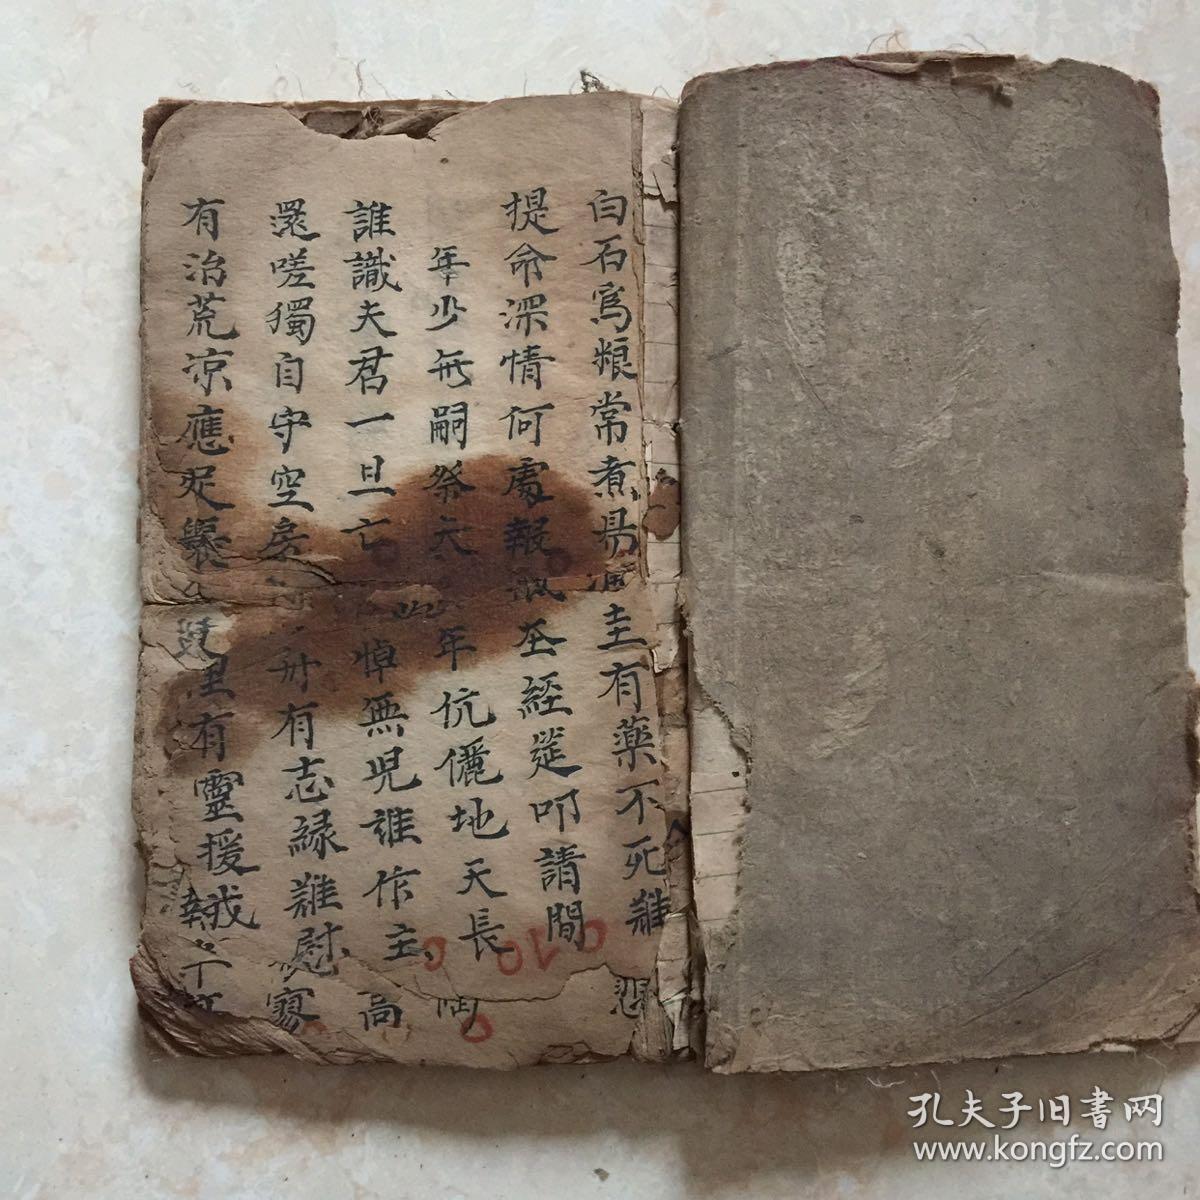 白石為粮常煮易 圭有藥不死難 想
提命深情何處報 圣經筵叩請間
年少無嗣祭夫 年伉儷地天長
誰識夫君一旦亡 悼無児誰作主 高
還嗟獨自守空房 有志緑難慰寡
有治荒凉應足 里有靈援戒
孔夫子旧書网
www.kongfz.com